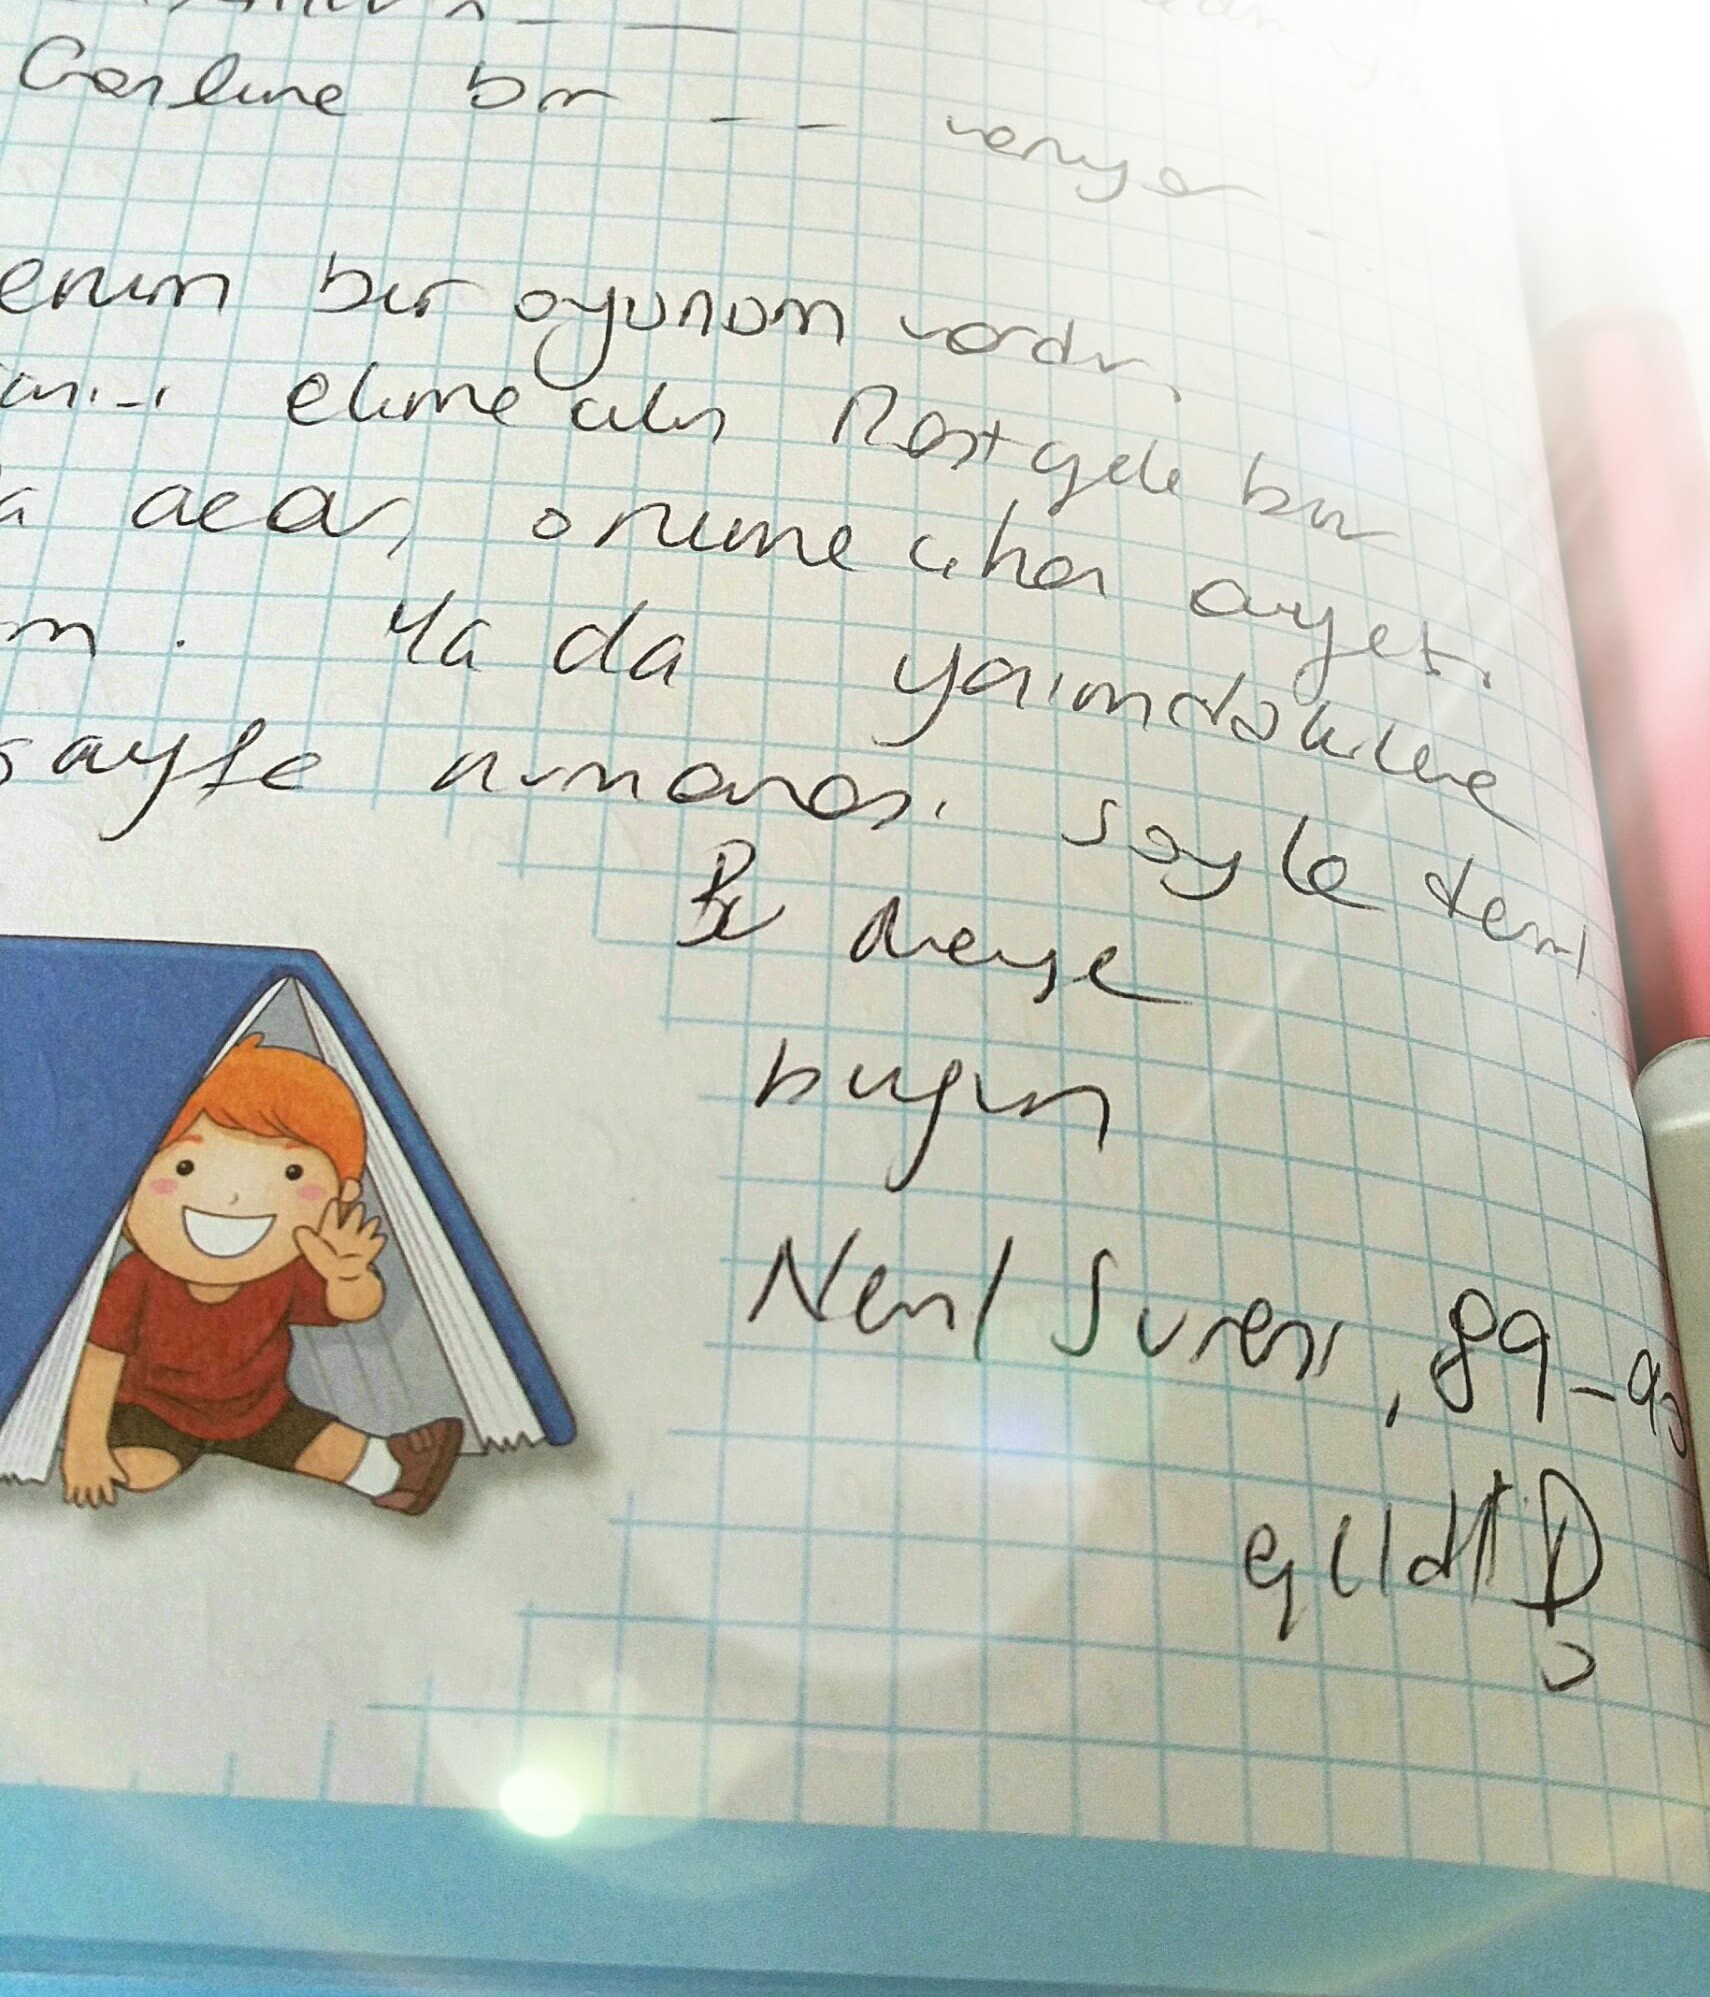 bir veriyor
enim bir oyunum vardı.
elime alır Rastgele bir
a açar, önüme çıkan ayeti
m. Ya da yanımdakilere
sayfa numarası söyle derim
Bu
bugün
Neml Suresi, 89-93
geldi